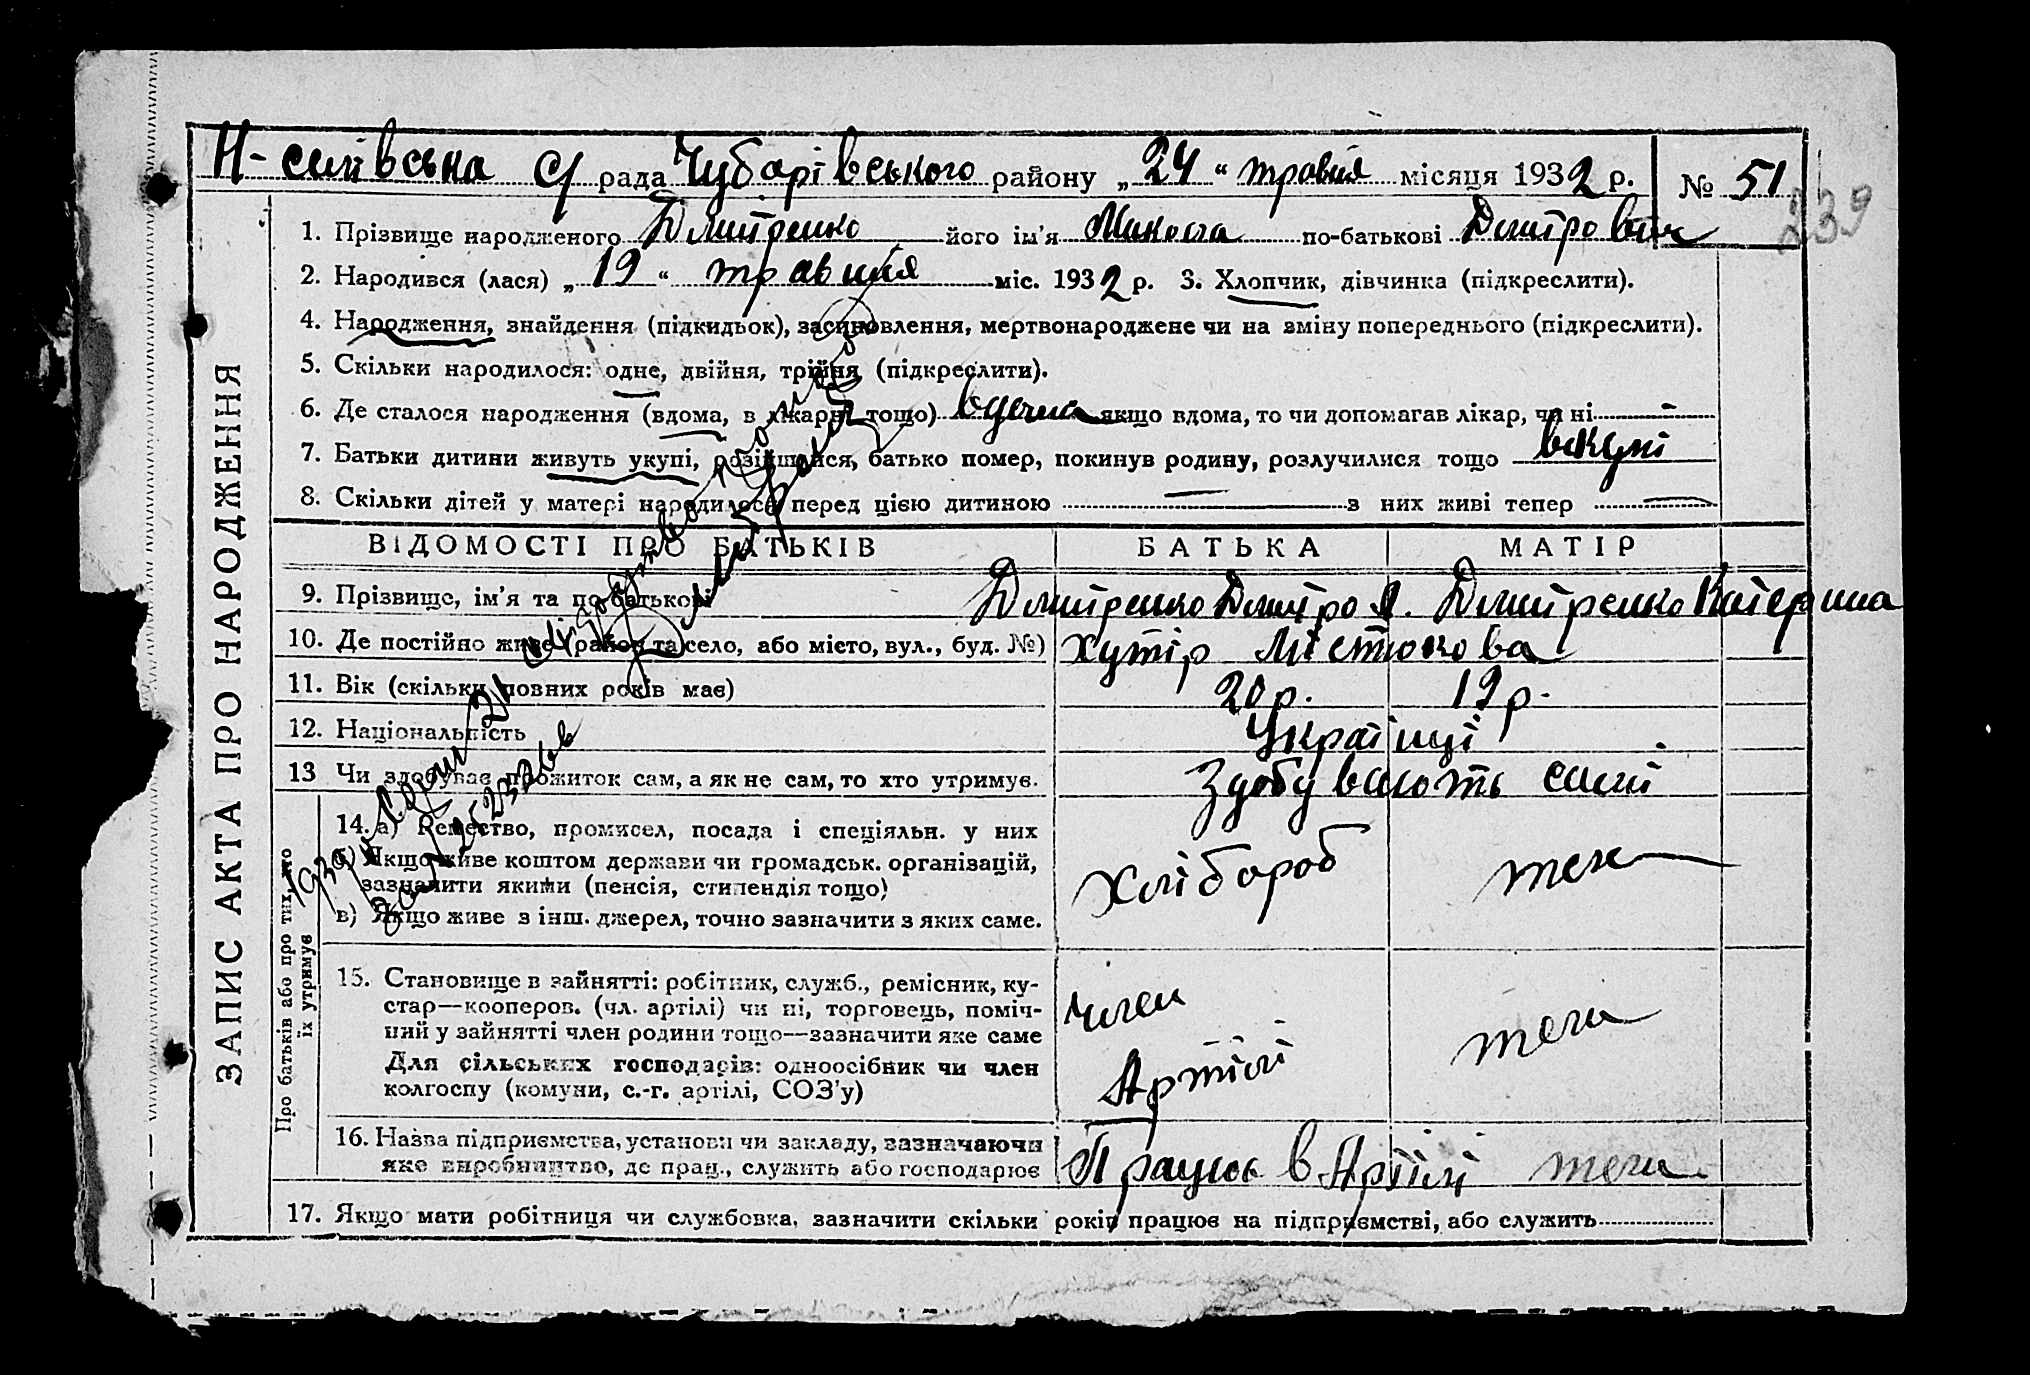 Н-селівська с/рада Чубарівського району „24“ травня місяця 1932 р. № 51
239
1. Прізвище народженого Дмитренко його ім’я Микола по-батькові Дмитрович
2. Народився (лася) „19“ травня міс. 1932 р. 3. Хлопчик, дівчинка (підкреслити).
4. Народження, знайдення (підкидьок), засиновлення, мертвонароджене чи на зміну попереднього (підкреслити).
5. Скільки народилося: одне, двійня, трійня (підкреслити).
6. Де сталося народження (вдома, в лікарні тощо) вдома якщо вдома, то чи допомагав лікар, чи ні -
7. Батьки дитини живуть укупі, розійшлися, батько помер, покинув родину, розлучилися тощо вкупі
8. Скільки дітей у матері народилося перед цією дитиною — з них живі тепер —
ВІДОМОСТІ ПРО БАТЬКІВ БАТЬКА МАТІР
9. Прізвище, ім’я та по-батькові Дмитренко Дмитро Я. Дмитренко Катерина
10. Де постійно живе (район та село, або місто, вул., буд. №) хутір Містюкова
11. Вік (скільки повних років має) 20 р. 19 р.
12. Національність Українці
13 Чи здобуває прожиток сам, а як не сам, то хто утримує. Здобувають самі
14. а) Ремество, промисел, посада і спеціяльн. у них
б) Якщо живе коштом держави чи громадськ. організацій,
зазначити якими (пенсія, стипендія тощо)
в) Якщо живе з інш. джерел, точно зазначити з яких саме.
Хлібороб теж
15. Становище в зайнятті: робітник, служб., ремісник, ку-
стар—кооперов. (чл. артілі) чи ні, торговець, поміч-
ний у зайнятті член родини тощо—зазначити яке саме
Для сільських господарів: одноосібник чи член
колгоспу (комуни, с.-г. артілі, СОЗ’у)
Член
Артілі
теж
16. Назва підприємства, установи чи закладу, зазначаючи
яке виробництво, де прац., служить або господарює
Працює в Артілі теж
17. Якщо мати робітниця чи службовка, зазначити скільки років працює на підприємстві, або служить
ЗАПИС АКТА ПРО НАРОДЖЕННЯ
Про батьків або про тих, хто
їх утримує